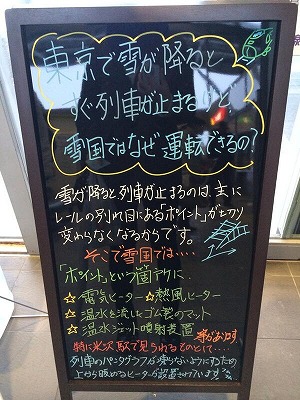 東京で雪が降ると
すぐ列車が止まるけど、
雪国ではなぜ運転できるの?
雪が降ると列車が止まるのは、主に
レールの別れ目にある「ポイント」が切り
変わらなくなるからです。
そこで雪国では…
「ポイント」という箇所に、
☆電気ヒーター ☆熱風ヒーター
☆温水を流したゴム製のマット
☆温水ジェット噴射装置 等があります
特に米沢駅で見られるものとして…
列車のパンタグラフに雪が乗らないようにするため
上から暖めるヒーターが設置されています!